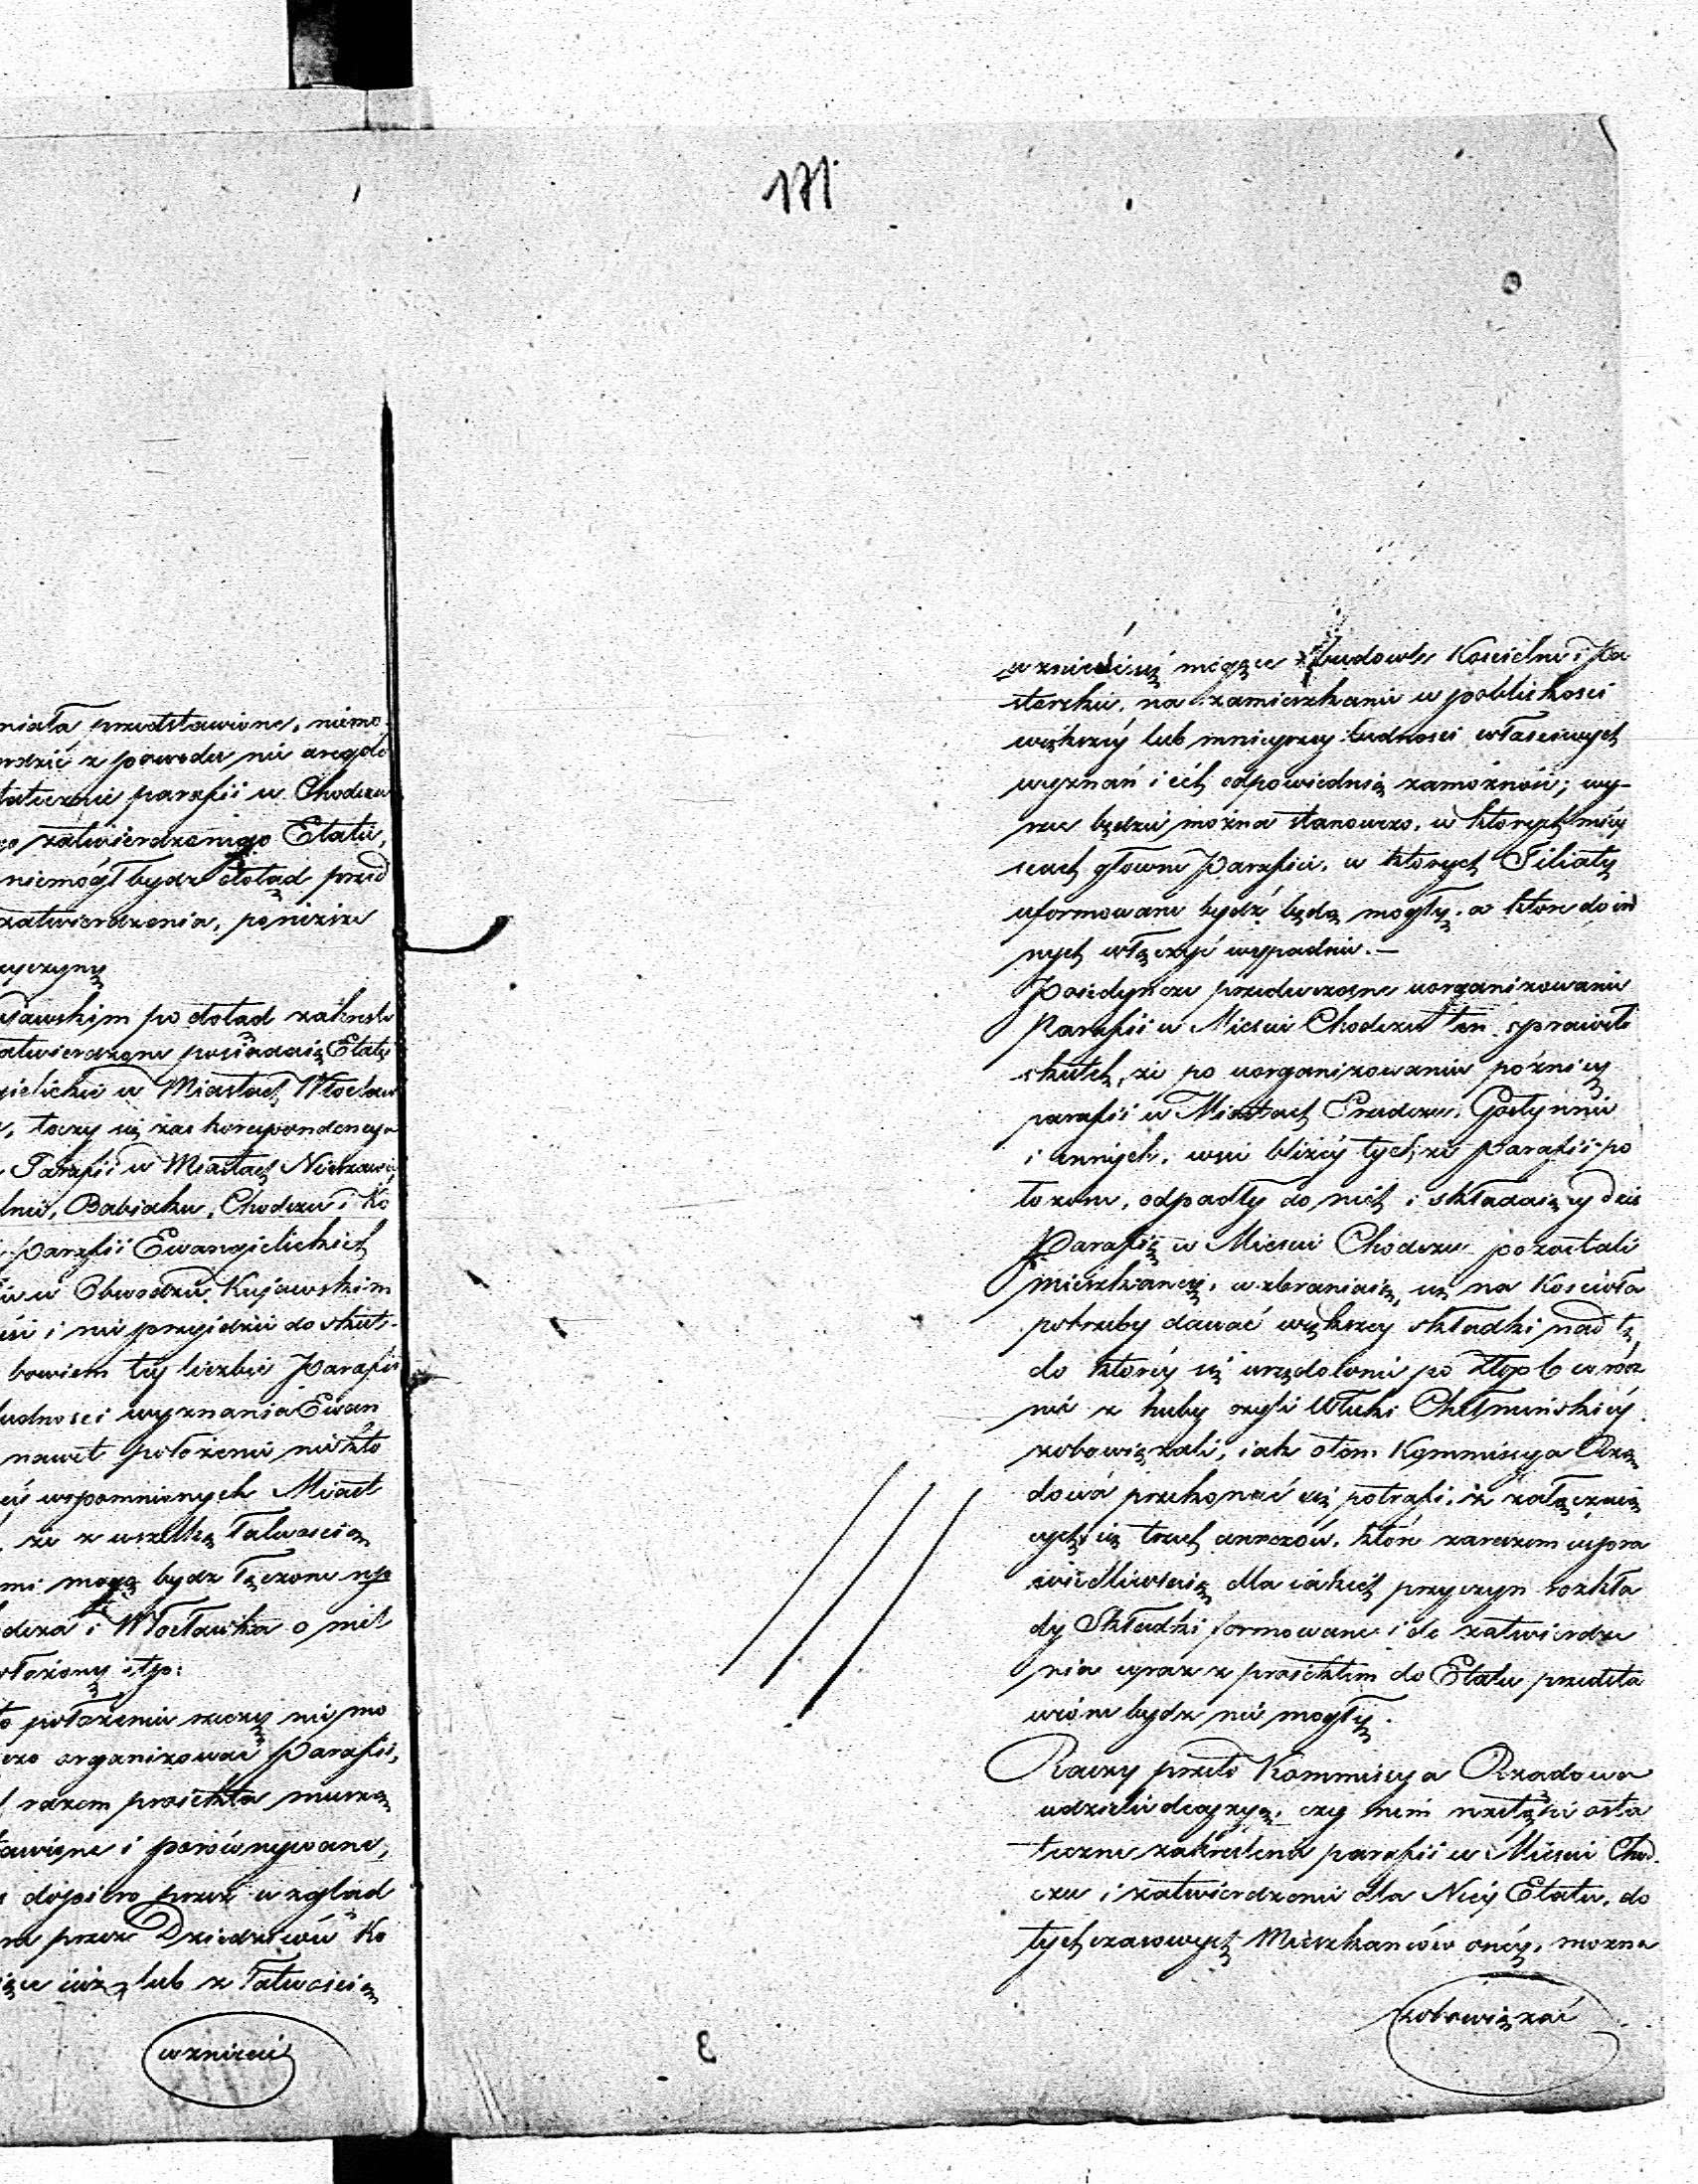 171
niała przedstawione, niemo
z powodu nie uregulo
parafii w Chodczu
zatwierdzonego Etatu,
niemógł bydz dotąd przed
zatwierdzenia, poniższe
przyczyny
jawskim po dotąd zakreślo
zatwierdzone posiadaią Etaty
gielickie w Miastach Włocław
toczy się zaś korespondencya
Parafii w Miastach Nieszawie,
Babiaku, Chodczu i Ko
parafii Ewangielickich
w Obwodzie Kujawskim
i nie przyidzie do skut-
bowiem tey liczbie Parafii
ludności wyznania Ewan
nawet położenie
wspomnionych Miast
że z wszelką łatwością
mi mogą bydz łączone np
dcza i Włocławka o mil
położony itp:
położeniu rzeczy nie mo
organizować Parafii,
razem proiekta muszą
i porównywane,
dopiero przez wzgląd
przez Dziedziców Ko
iuż, lub z łatwością
wznieść
wznieść się mogące budowle Kościelne i pa
sterskie, na zamieszkanie w pobliskości
większéy lub mnieyszey ludności właściwych
wyznań i ich odpowiednią zamożność; wy-
rzec będzie można stanowczo, w których miey
scach główne Parafie, w których Filiały
uformowane bydź będą mogły, a które do in
nych włączyć wypadnie.—
Poiedyncze przedwczesne uorganizowanie
Parafii w Mieście Chodczu ten sprawiło
skutek, że po uorganizowaniu późniey
parafii w Miastach Przedczu, Gostyninie
i innych, wsie bliżéy tychże Parafii po
łożone, odpadły do nich i składaiący dziś
Parafią w Mieście Chodczu pozostali
mieszkańcy, wzbraniaią się na Kościoła
potrzeby dawać większey składki nad tę,
do któréy się urzędolonie po Złop 6 co rocz
nie z huby czyli Włuki Chełmińskiéy
zobowiązali, iak o tem Kommissya Rzą
dowa przekonać się potrafi, z załączaią
cych się trzech anexów, które zarazem uspra
wiedliwieią dla iakich przyczyn rozkła
dy Składki formowane i do zatwierdze
nia wraz z proiektem do Etatu przedsta
wione bydz nie mogły.
Raczy przeto Kommissya Rządowa
udzielić decyzyą, czy nim nastąpi osta
teczne zakreślenie parafii w Mieście Chod
czu i zatwierdzenie dla Niéy Etatu, do
tychczasowych Mieszkańców onéy, można
zobowiązać